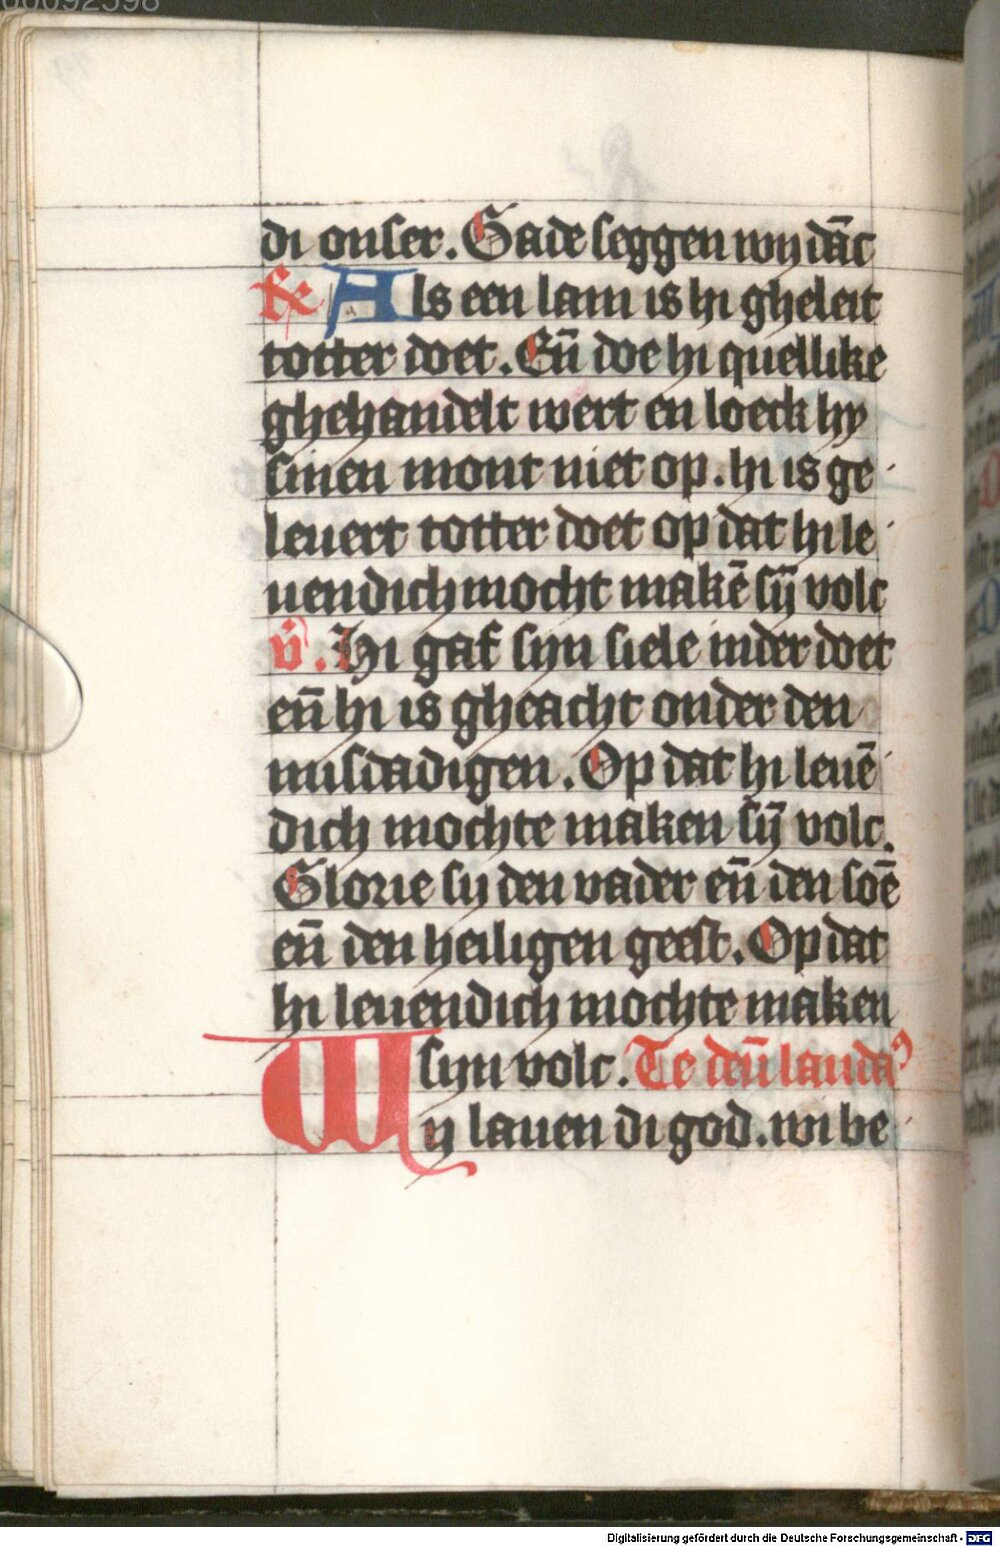 00092598
di onser. Gade seggen wy dāc
℟ Als een lam is hi gheleit
totter doet. Eñ doe hi quellike
ghehandelt wert en loeck hy
sinen mont niet op. hi is ge
leuert totter doet op dat hi le
uendich mocht makē sȳ volc
v̄. Hi gaf syn siele inder doet
eñ hi is gheacht onder den
misdadigen. Op dat hi leuē
dich mochte maken sȳ volc.
Glorie sy den vader eñ den soē
eñ den heiligen geest. Op dat
hi leuendich mochte maken
syn volc. Te deū laudaꝰ
Wy lauen di god. wi be
Digitalisierung gefördert durch die Deutsche Forschungsgemeinschaft - DFG